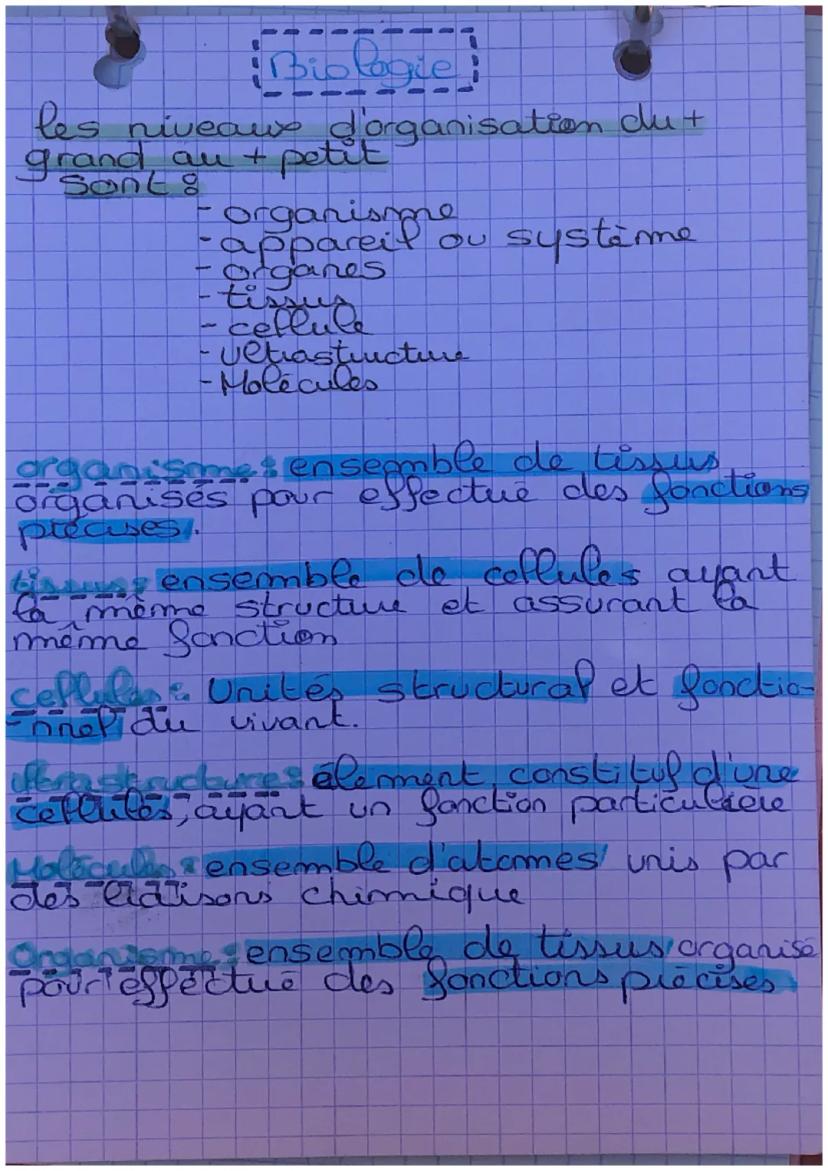 Biologie
les niveaux d'organisation du +
grand au + petit
sont :
- organisme
- appareil ou système
- organes
- tissus
- cellule
- ultrastructure
- Molécules
organisme : ensemble de tissus
organisés pour effectué des fonctions
précises.
tissus : ensemble de cellules ayant
la même structure et assurant la
même fonction
cellules : Unités structural et fonctio-
-nnel du vivant.
ultrastructure : élement constitif d'une
cellules, ayant un fonction particulière
Molécules : ensemble d'atomes unis par
des liaisons chimique
Organisme : ensemble de tissus organisé
pour effectué des fonctions précises